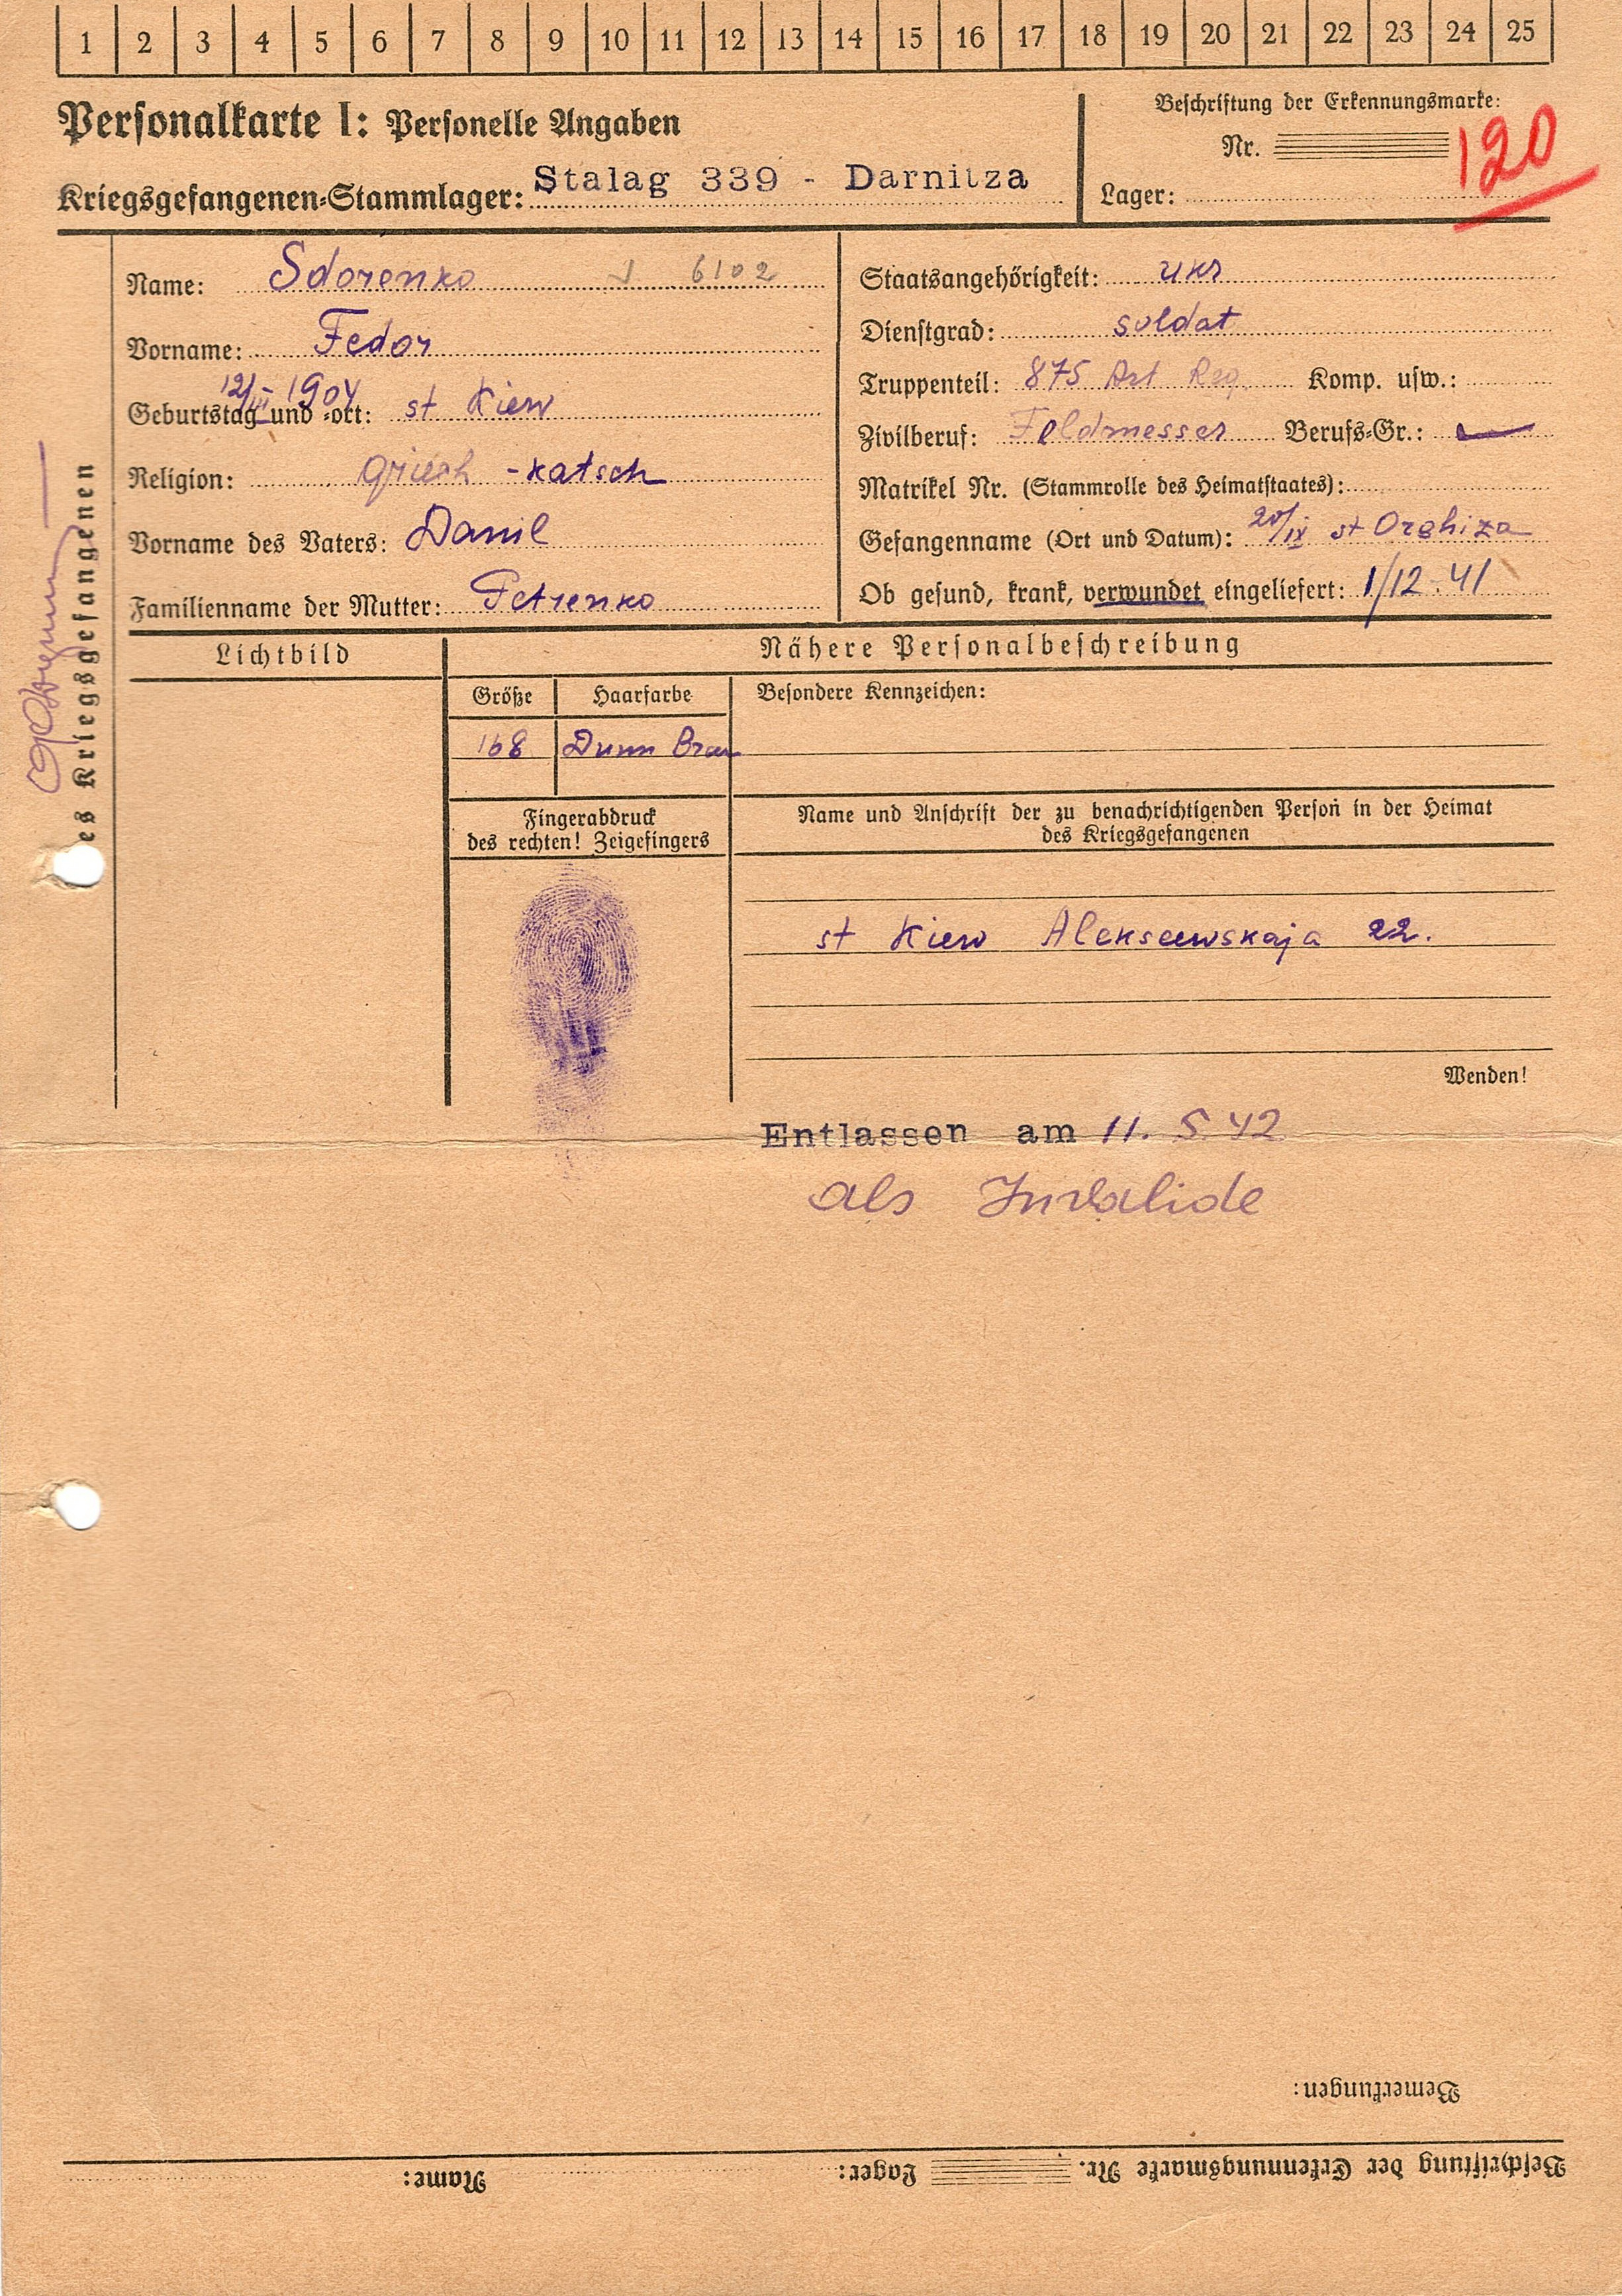 1 2 3 4 5 6 7 8 9 10 11 12 13 14 15 16 17 18 19 20 21 22 23 24 25
Personalkarte I: Personelle Angaben
Kriegsgefangenen-Stammlager: Stalag 339 - Darnitza
Beschriftung der Erkennungsmarke:
Nr. 120
Lager:
es Kriegsgefangenen
Name: Sdorenko 6102
Vorname: Fedor
12/III - 1904
Geburtstag und -ort: st Kiew
Religion: Griech - katsch
Vorname des Vaters: Danil
Familienname der Mutter: Petrenko
Staatsangehörigkeit: ukr
Dienstgrad: soldat
Truppenteil: 875 Art Reg. Komp. usw.:
Zivilberuf: Feldmesser Berufs-Gr.:
Matrikel Nr. (Stammrolle des Heimatstaates):
Gefangenname (Ort und Datum): 20/IX st Orshiza
Ob gesund, krank, verwundet eingeliefert: 1/12.41
Lichtbild
Nähere Personalbeschreibung
Größe Haarfarbe Besondere Kennzeichen:
168 Dunn Braun
Fingerabdruck
des rechten! Zeigefingers
Name und Anschrift der zu benachrichtigenden Person in der Heimat
des Kriegsgefangenen
st Kiew Alekseewskaja 22.
Wenden!
Entlassen am 11. 5 42
als Invalide
Bemerkungen:
Beschriftung der Erkennungsmarke Nr. Lager: Name: